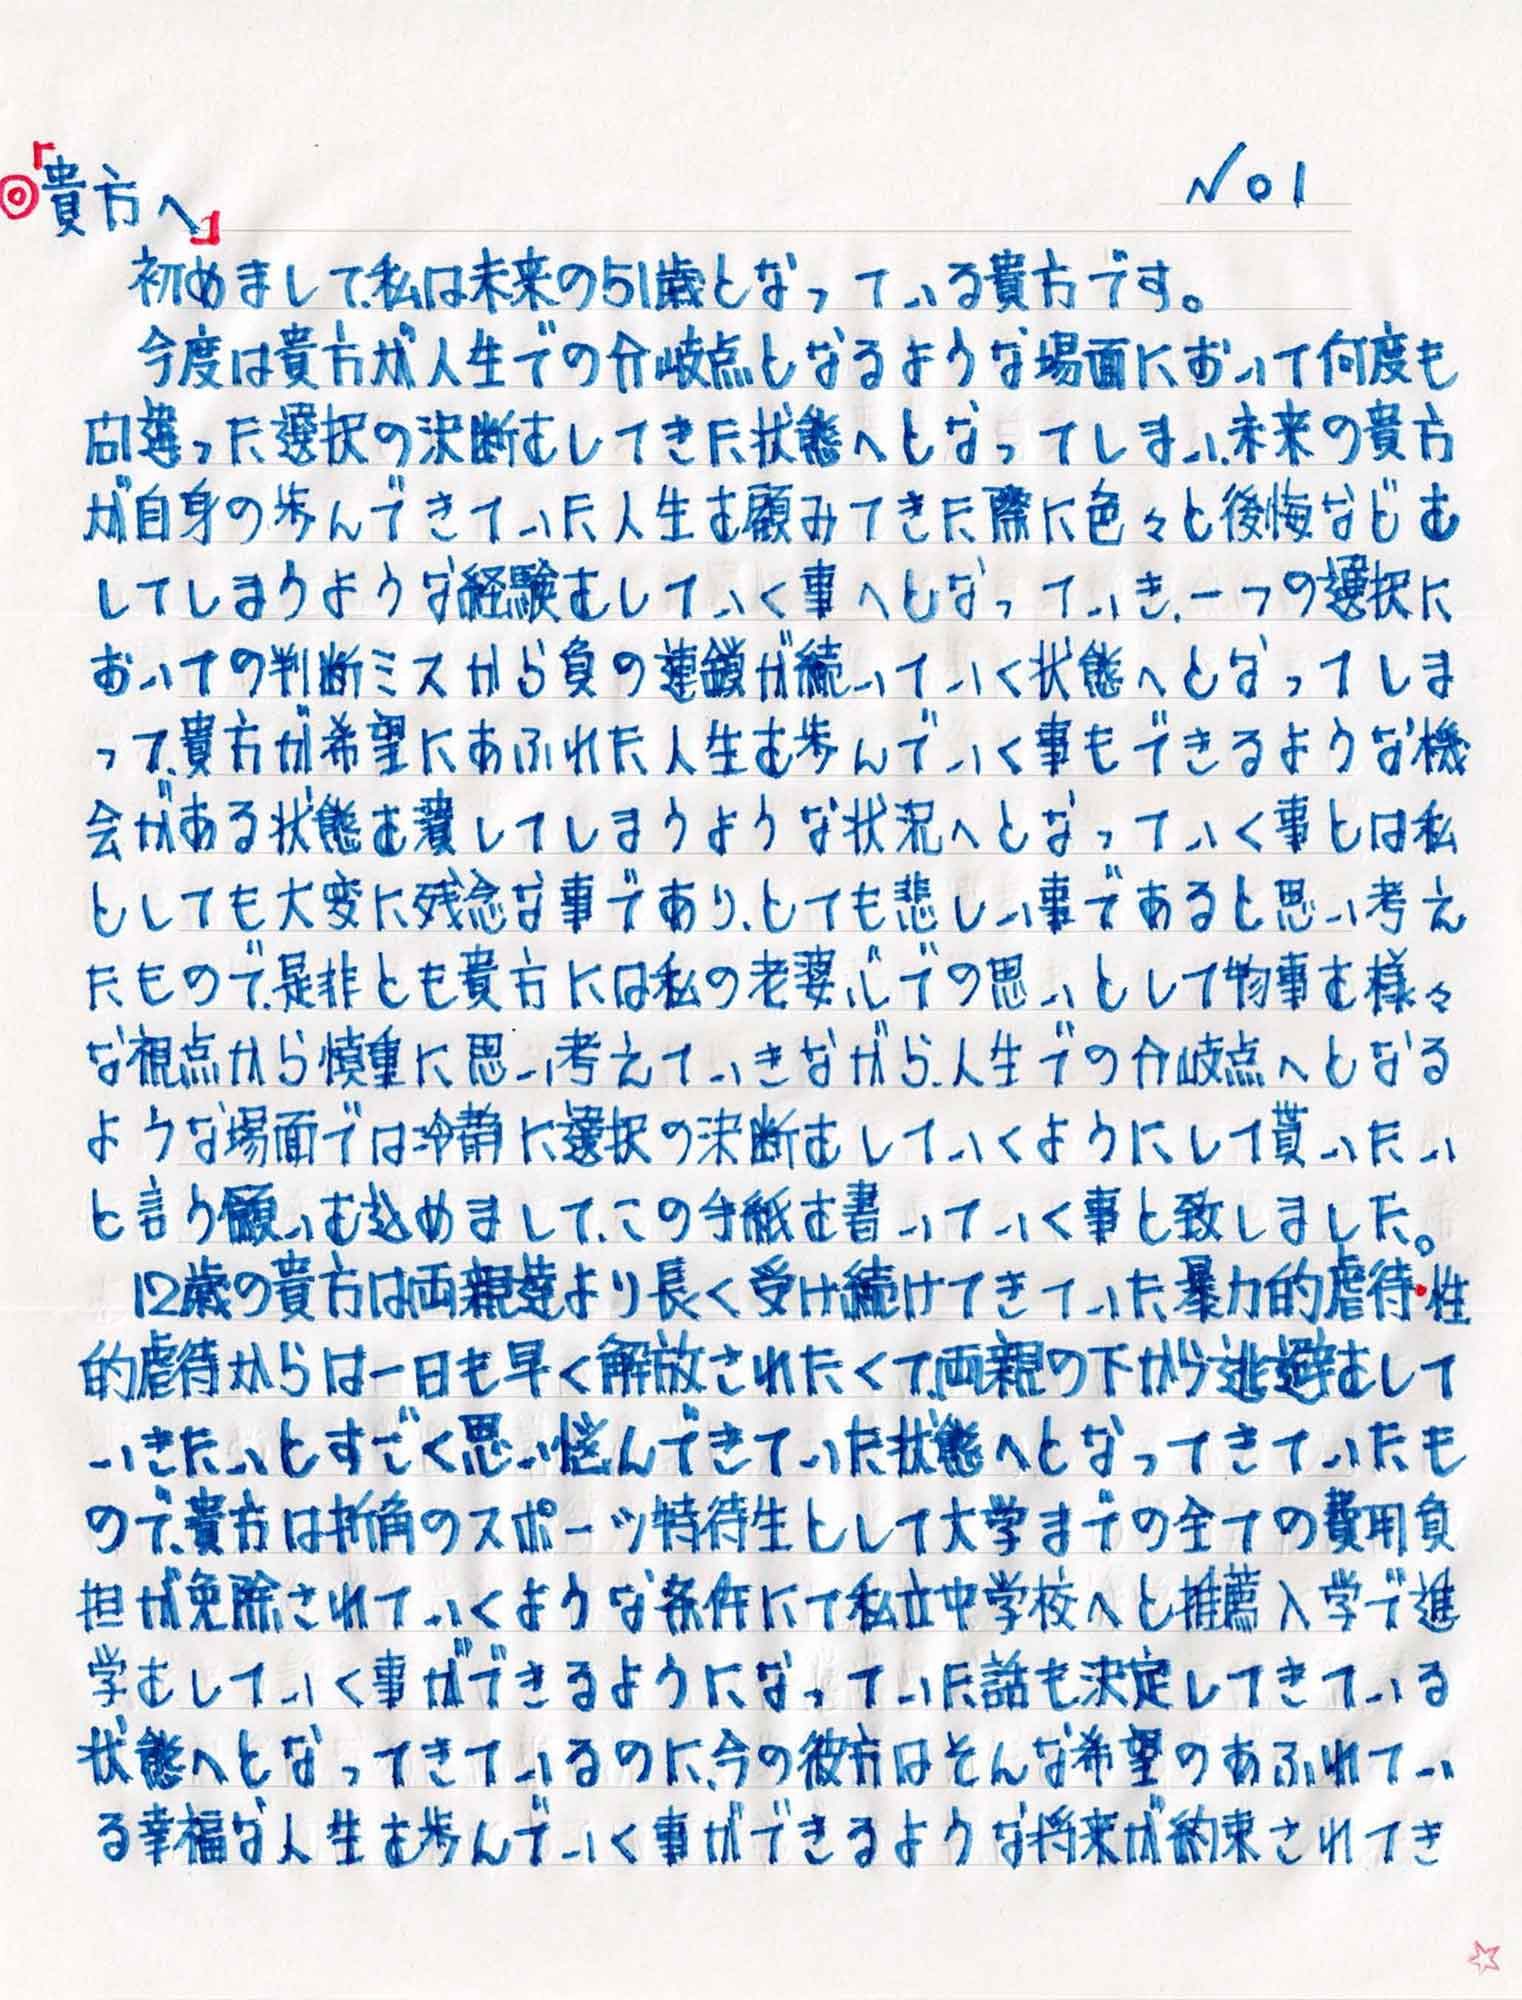 No1
◎「貴方へ」
初めまして、私は未来の51歳となっている貴方です。
今度は貴方が人生での分岐点となるような場面において何度も
間違った選択の決断をしてきた状態へとなってしまい、未来の貴方
が自身の歩んできていた人生を顧みてきた際に色々と後悔などを
してしまうような経験をしていく事へとなっていき、一つの選択に
おいての判断ミスから負の連鎖が続いていく状態へとなってしま
って、貴方が希望にあふれた人生を歩んでいく事もできるような機
会がある状態を潰してしまうような状況へとなっていく事とは私
としても大変に残念な事であり、とても悲しい事であると思い考え
たもので、是非とも貴方には私の老婆心での思いとして物事を様々
な視点から慎重に思い考えていきながら、人生での分岐点へとなる
ような場面では冷静に選択の決断をしていくようにして貰いたい
と言う願いを込めまして、この手紙を書いていく事と致しました。
12歳の貴方は両親達より長く受け続けてきていた暴力的虐待・性
的虐待からは一日も早く解放されたくて、両親の下から逃避をして
いきたいとすごく思い悩んできていた状態へとなってきていたも
ので、貴方は折角のスポーツ特待生として大学までの全ての費用負
担が免除されていくような条件にて私立中学校へと推薦入学で進
学をしていく事ができるようになっていた話も決定してきている
状態へとなってきているのに、今の彼方はそんな希望のあふれてい
る幸福な人生を歩んでいく事ができるような将来が約束されてき